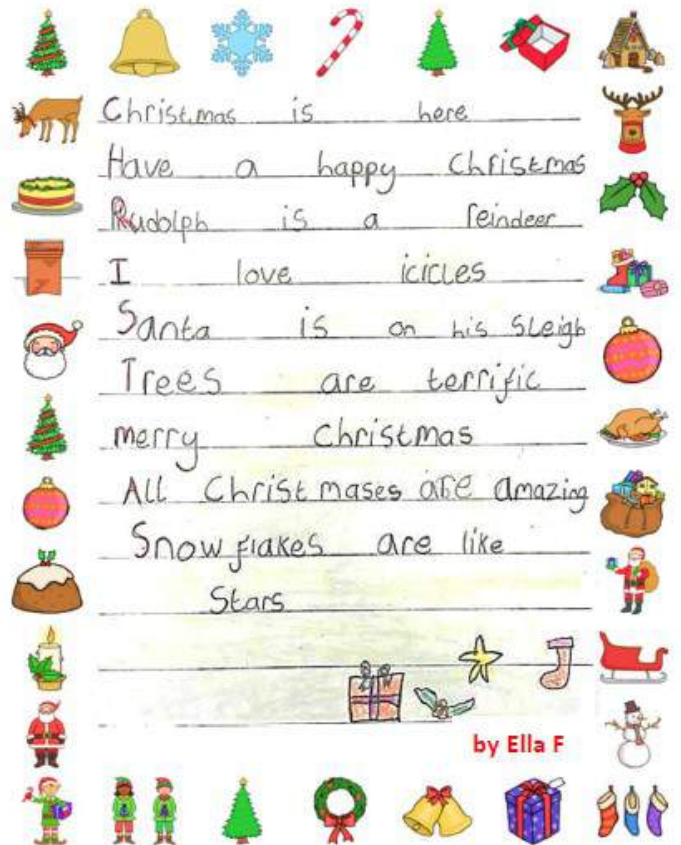 Christmas is here
Have a happy Christmas
Rudolph is a reindeer
I love icicles
Santa is on his sleigh
Trees are terrific
merry Christmas
All Christmases are amazing
Snowflakes are like
Stars
by Ella F